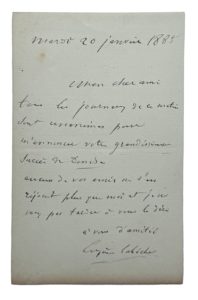 Mardi 20 janvier 1885
Mon cher ami
tous les journaux de ce matin
sont unanimes pour
m'annoncer votre grandissime
succès de
aucun de vos amis ne s'en
réjouit plus que moi et je ne
veux pas tarder à vous le dire
à vous d'amitié
Eugène Labiche